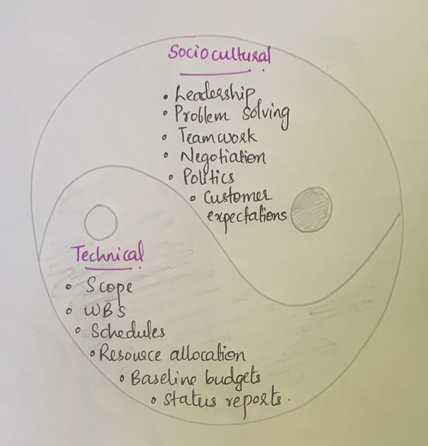 Sociocultural
• Leadership
• Problem solving
• Teamwork
• Negotiation
• Politics
• Customer
expectations
Technical
• Scope
• WBS
• Schedules
• Resource allocation
• Baseline budgets
• Status reports.